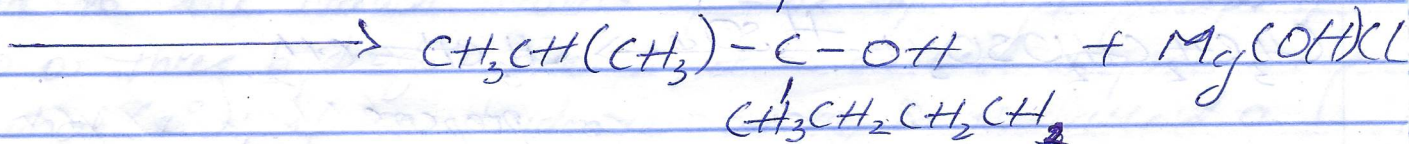 ⟶ CH₃CH(CH₃)-C-OH + Mg(OH)Cl
CH₃CH₂CH₂CH₂